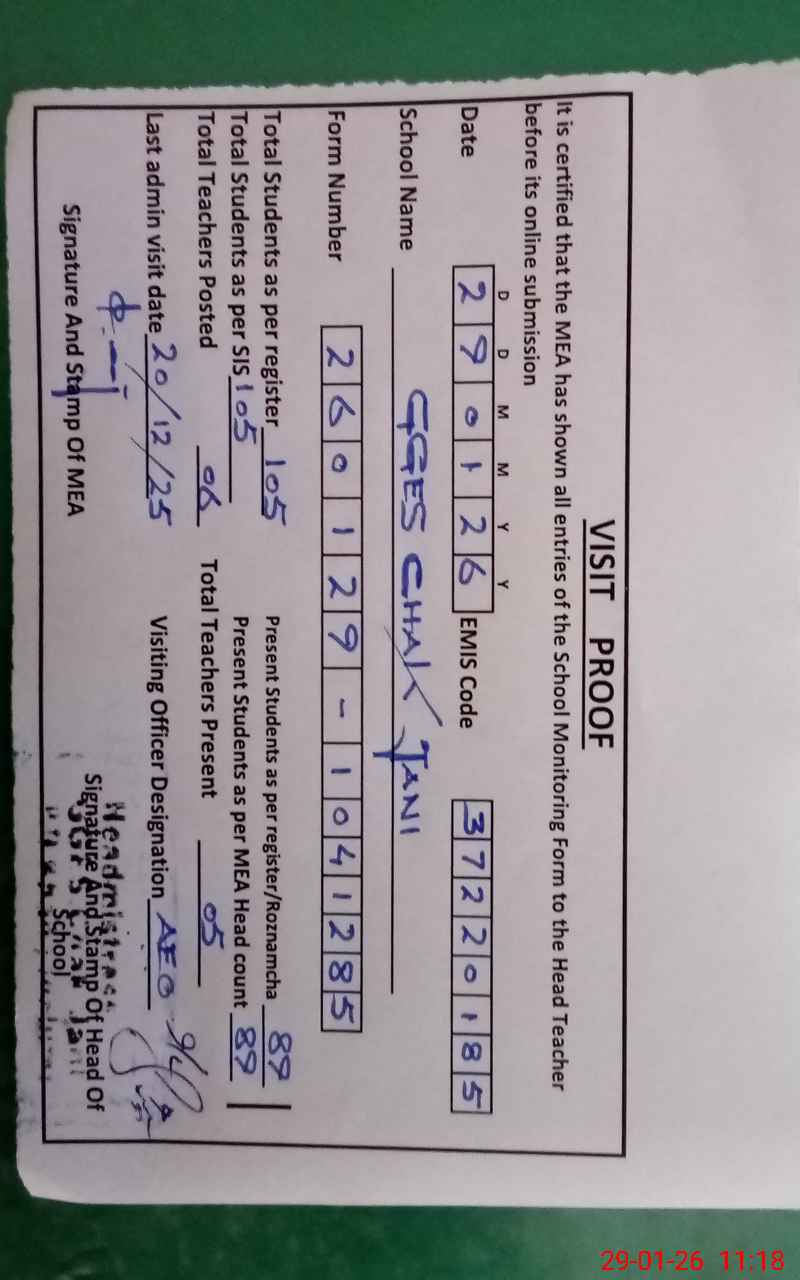 VISIT PROOF
It is certified that the MEA has shown all entries of the School Monitoring Form to the Head Teacher
before its online submission
D D M M Y Y
Date 2 9 0 1 2 6 EMIS Code 3 7 2 2 0 1 8 5
School Name GGES CHAK JANI
Form Number 2 6 0 1 2 9 - 1 0 4 1 2 8 5
Total Students as per register 105 Present Students as per register/Roznamcha 89
Total Students as per SIS 105 Present Students as per MEA Head count 89
Total Teachers Posted 06 Total Teachers Present 05
Last admin visit date 20/12/25 Visiting Officer Designation AEO
Headmistress
Signature And Stamp Of MEA Signature And Stamp Of Head Of
School
29-01-26 11:18